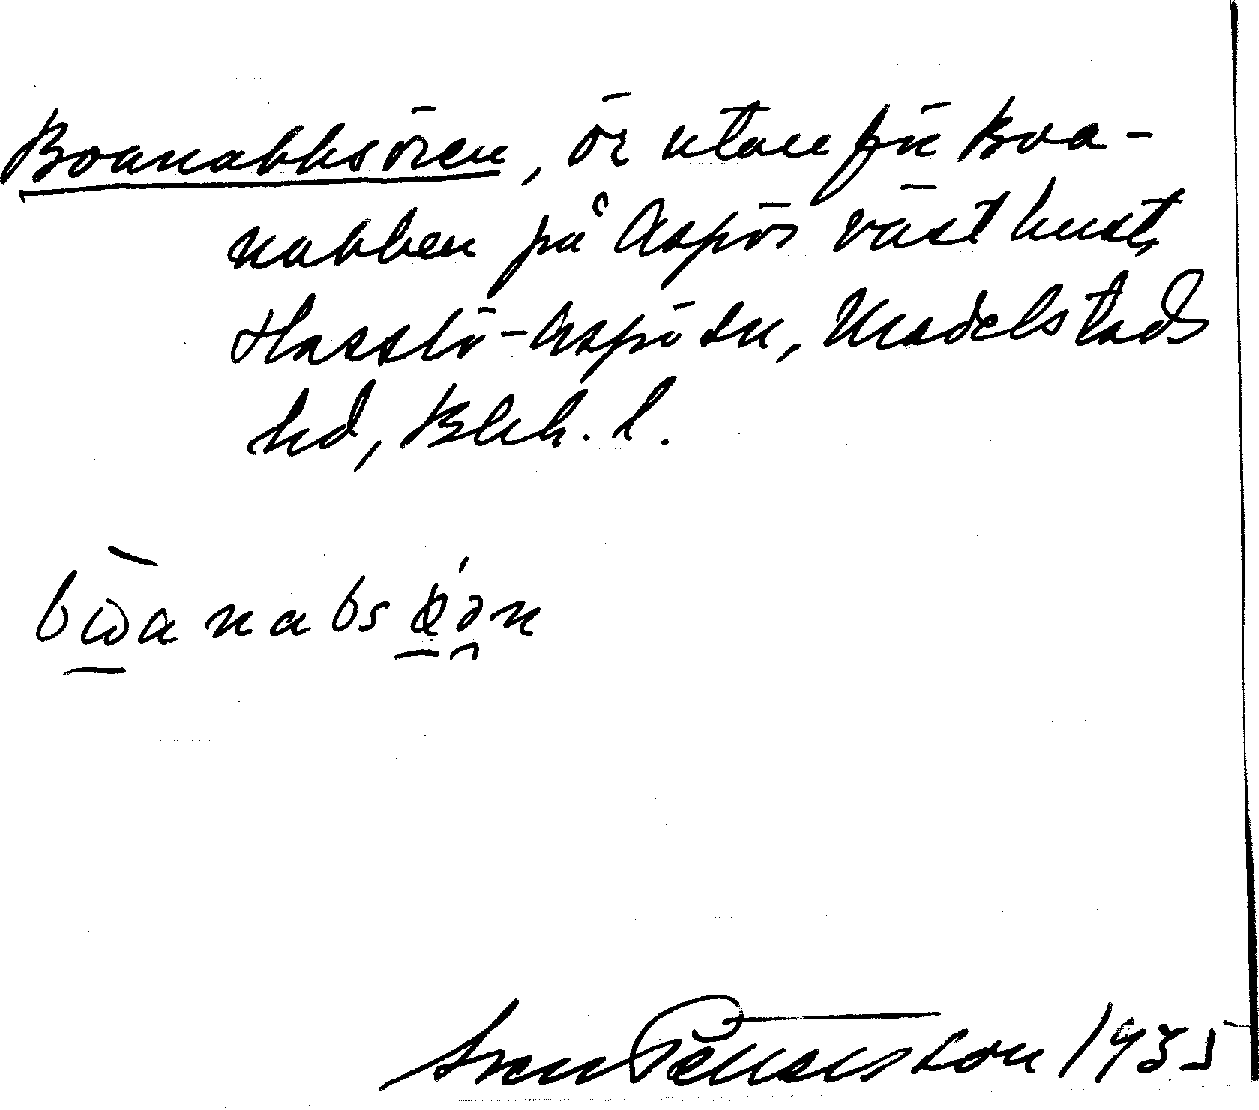 Boanabbsören, ör utanför Boa-
nabben på Aspös västkust,
Hasslö-Aspö sn, Medelstads
hd, Blek. l.
Sven Pettersson 1935